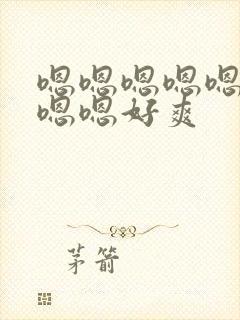 嗯嗯嗯嗯嗯
嗯嗯好爽
茅箭